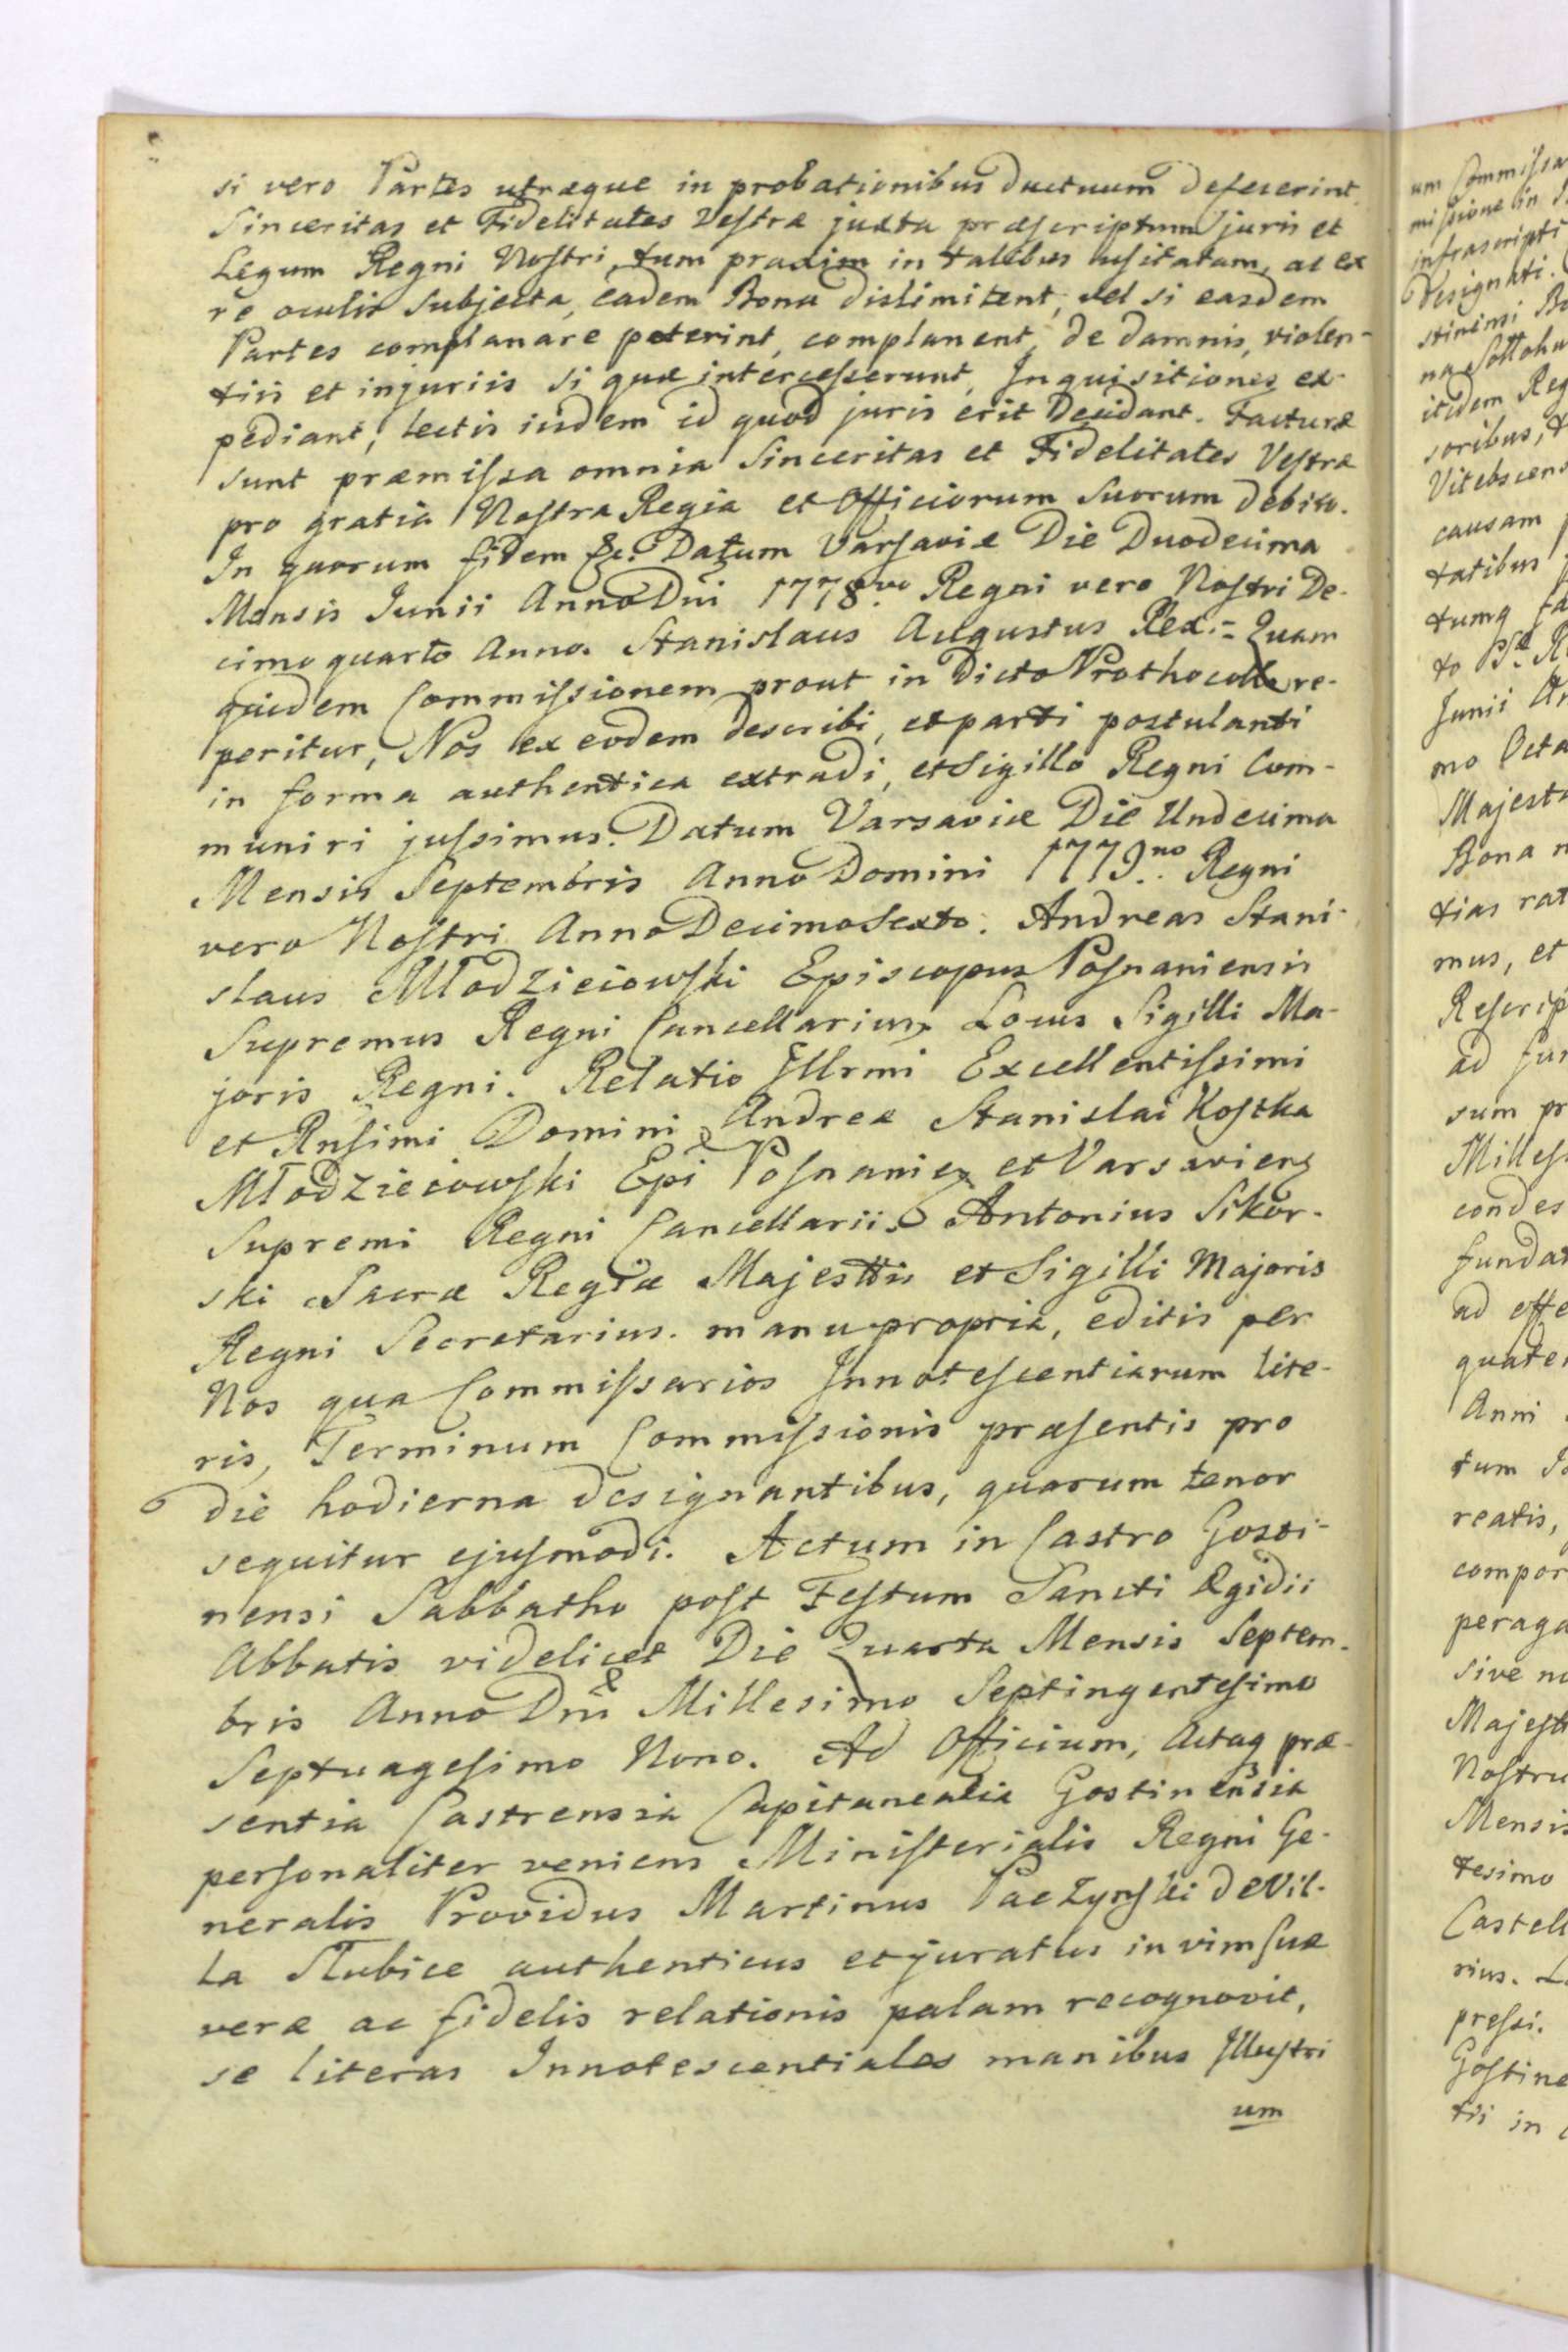 si vero Partes utræque in probationibus ductuum defecerint
Sinceritas et Fidelitates Vestræ juxta præscriptum juris et
Legum Regni Nostri, tum praxim in talibus usitatam, ac ex
re oculis subjecta, eadem Bona dislimitent, vel si easdem
Partes complanare poterint, complanent, de damnis, violen-
tiis et injuriis si quæ intercesserunt, Inquisitiones ex-
pediant, lectis iisdem id quod juris erit Decidant. Facturæ
sunt præmissa omnia Sinceritas et Fidelitates Vestræ
pro gratia Nostra Regia et Officiorum Suorum debito.
In quorum fidem &c. Datum Varsaviæ Die Duodecima
Mensis Junii Anno Dni 1778vo. Regni vero Nostri De-
cimo quarto Anno. Stanislaus Augustus Rex := Quam
quidem Commissionem prout in Dicto Prothocollo re-
peritur, Nos ex eodem describi, et parti postulanti
in forma authentica extradi, et Sigillo Regni Com-
muniri jussimus. Datum Varsaviæ Die Undecima
Mensis Septembris Anno Domini 1779no. Regni
vero Nostri Anno Decimo Sexto. Andreas Stani-
slaus Młodzieiowski Episcopus Posnaniensis
Supremus Regni Cancellarius. Locus Sigilli Ma-
joris Regni. Relatio Illrmi Excellentissimi
et Rnsimi Domini Andreæ Stanislai Kostka
Młodzieiowski Epi Posnanien et Varsavien
Supremi Regni Cancellarii. Antonius Sikor-
ski Sacræ Regiæ Majesttis et Sigilli Majoris
Regni Secretarius. manu propria, editis per
Nos qua Commissarios Innotescentiarum lite-
ris, Terminum Commissionis præsentis pro
die hodierna designantibus, quarum tenor
sequitur ejusmodi. Actum in Castro Gosti-
nensi Sabbatho post Festum Sancti Ægidii
Abbatis videlicet Die Quarta Mensis Septem-
bris Anno Dni Millesimo Septingentesimo
Septuagesimo Nono. Ad Officium, Actaq præ-
sentia Castrensia Capitanealia Gostinensia
personaliter veniens Ministerialis Regni Ge-
neralis Providus Martinus Paczynski de Vil-
la Słubice authenticus et juratus in vim suæ
veræ ac fidelis relationis palam recognovit,
se literas Innotescentiales manibus Illustri
um
um Commissa
missione in
infrascripti
designati.
stinensi Bo
itidem Reg
soribus,
Vitebscens
causam
tatibus
tumq fa
Junii An
mo Octa
Majesta
Bona n
tias rat
mus, et
Rescrip
ad
sum pr
Milles
condes
fundat
ad effe
quaten
Anni
tum
reatis,
compor
peraga
sive no
Majest
Nostru
Mensis
tesimo
Castell
rius.
pressi.
Gostine
tii in